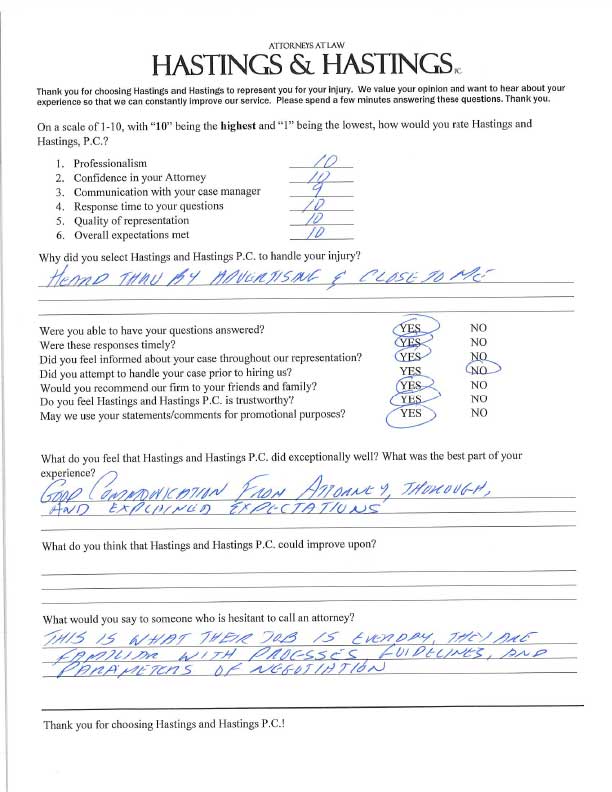 ATTORNEYS AT LAW
HASTINGS & HASTINGS PC
Thank you for choosing Hastings and Hastings to represent you for your injury. We value your opinion and want to hear about your
experience so that we can constantly improve our service. Please spend a few minutes answering these questions. Thank you.
On a scale of 1-10, with “10” being the highest and “1” being the lowest, how would you rate Hastings and
Hastings, P.C.?
1. Professionalism 10
2. Confidence in your Attorney 10
3. Communication with your case manager 9
4. Response time to your questions 10
5. Quality of representation 10
6. Overall expectations met 10
Why did you select Hastings and Hastings P.C. to handle your injury?
HEARD THRU BY ADVERTISING & CLOSE TO ME
Were you able to have your questions answered? YES NO
Were these responses timely? YES NO
Did you feel informed about your case throughout our representation? YES NO
Did you attempt to handle your case prior to hiring us? YES NO
Would you recommend our firm to your friends and family? YES NO
Do you feel Hastings and Hastings P.C. is trustworthy? YES NO
May we use your statements/comments for promotional purposes? YES NO
What do you feel that Hastings and Hastings P.C. did exceptionally well? What was the best part of your
experience?
GOOD COMMUNICATION FROM ATTORNEY, THOROUGH,
AND EXPLAINED EXPECTATIONS
What do you think that Hastings and Hastings P.C. could improve upon?
What would you say to someone who is hesitant to call an attorney?
THIS IS WHAT THEIR JOB IS EVERDAY, THEY ARE
FAMILIAR WITH PROCESSES, GUIDELINES, AND
PARAMETERS OF NEGOTIATION
Thank you for choosing Hastings and Hastings P.C.!